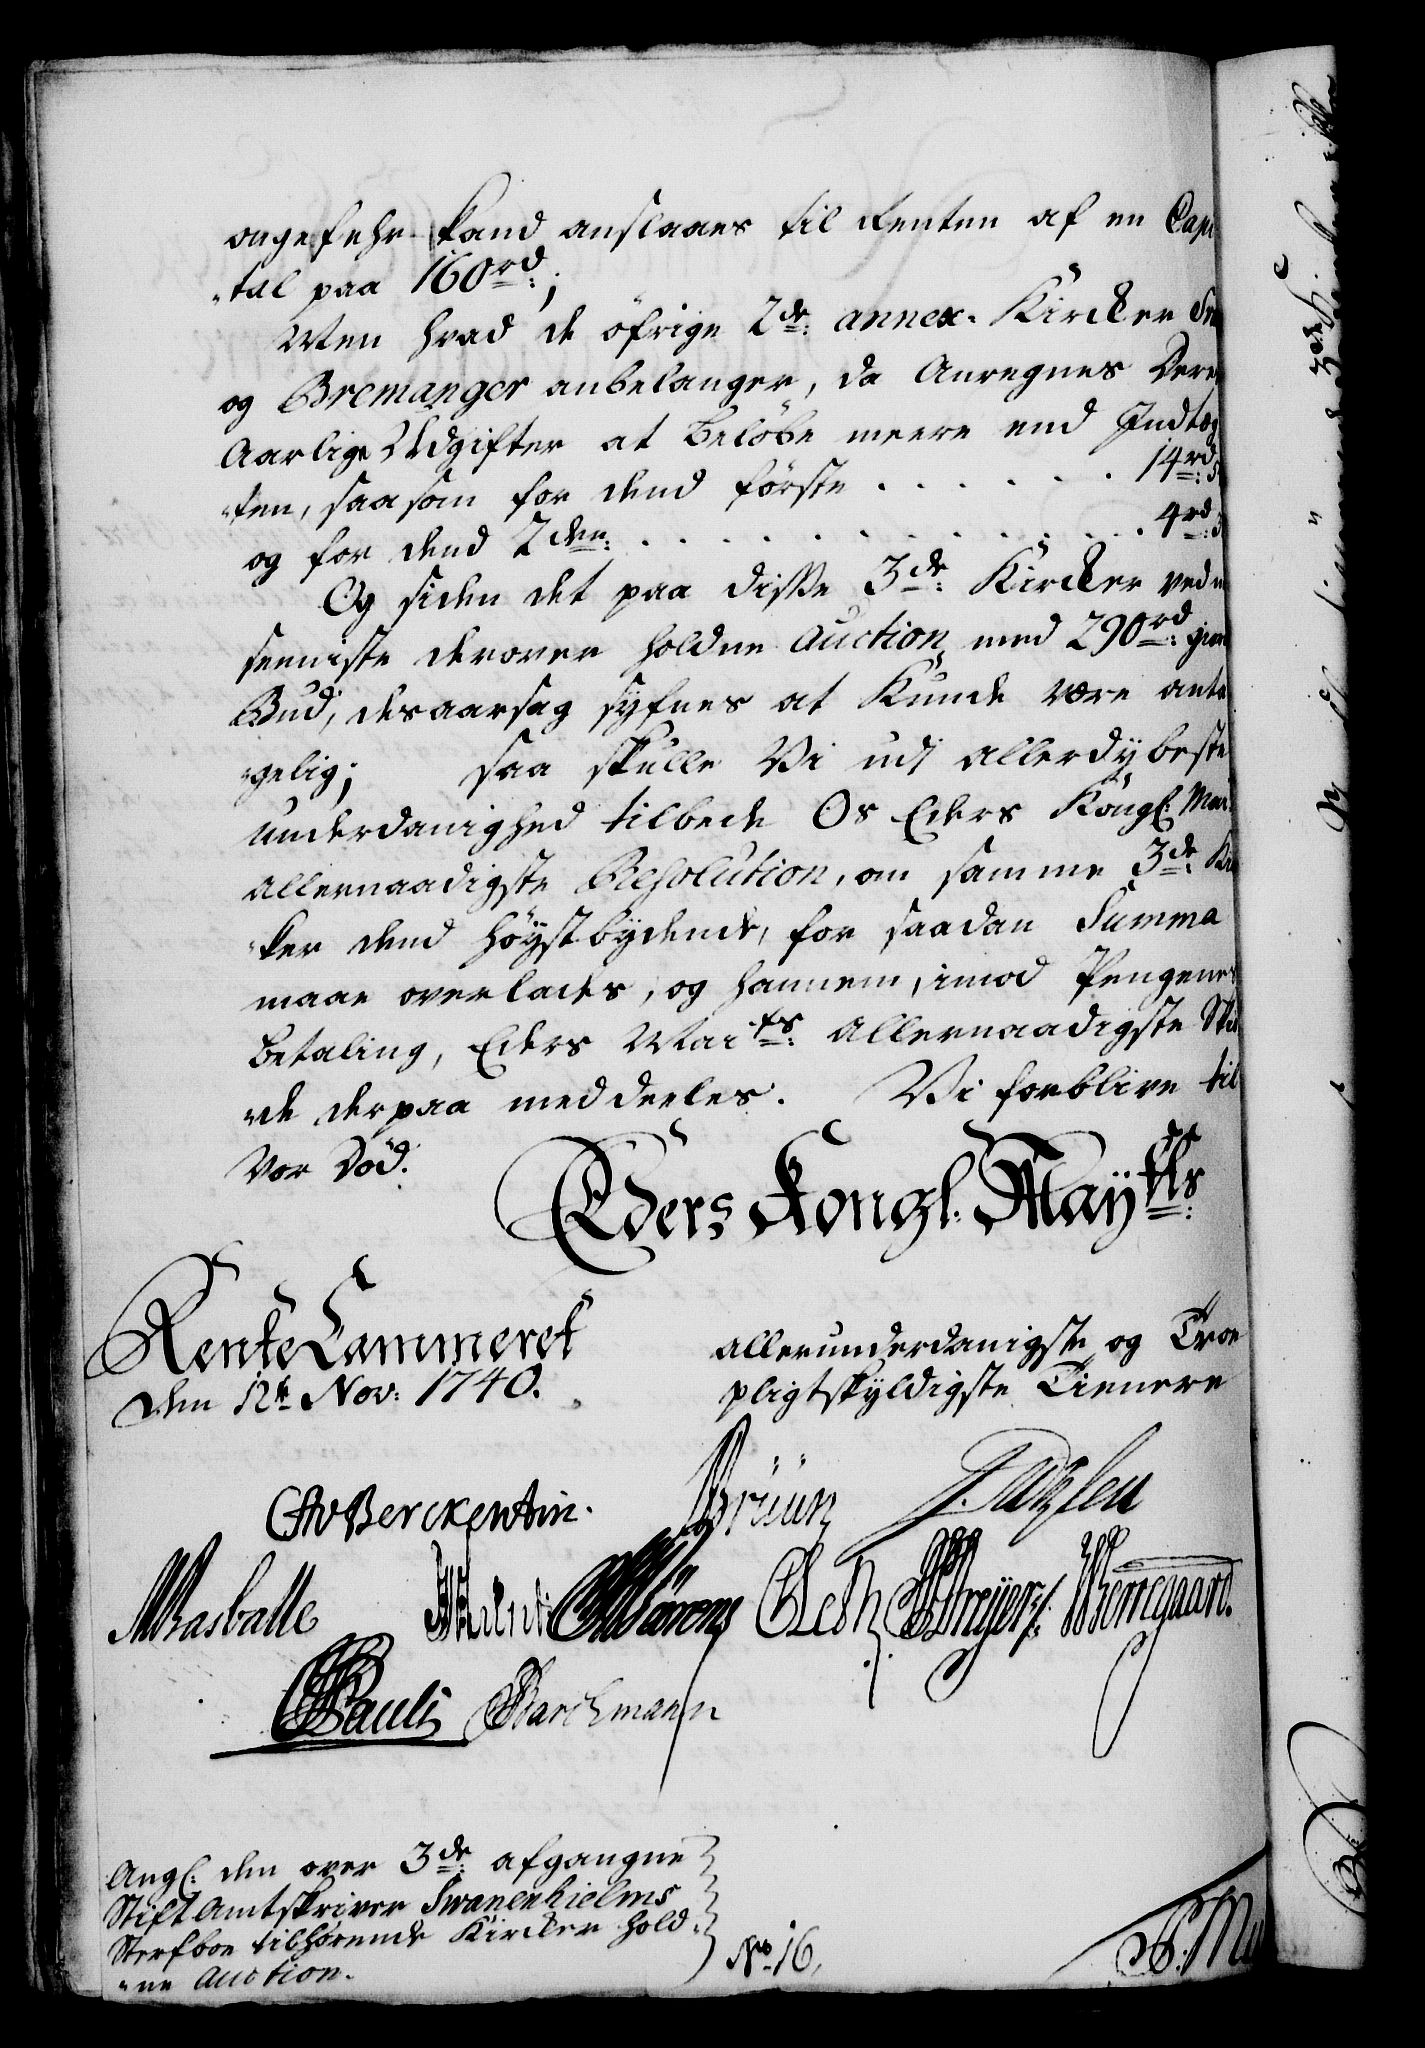 ongefehr kand anslaaes til Renten af en Capi
„tal paa 160 rd:;
Men hvad de öfrige 2de: annex-Kircker
og Bremanger anbelanger, da Anregnes Deres
Aarlige Udgifter at beløbe meere end Indtæg
„ten, saasom for dend første . . . . . . 14 rd:
og for dend 2den: . . . . . . . . . . 4 rd:
Og siden det paa disse 3de: Kircker ved
seeniste derover holdne Auction, med 290 rd: giort
Bud, desaarsag syfnes at Kunde være anta
„gelig; saa skulle Vi udj allerdybeste
underdanighed tilbede Os Eders Kongl: May:
allernaadigste Resolution, om samme 3de: Kir
„ker dend høystbydende, for saadan Summa
maae overlades, og hannem, imod Pengenes
betaling, Eders Mai ts: Allernaadigste Skiö
„de derpaa meddeeles. Vi forblive til
Vor Död.
Eders Kongl: Mayttˢ:
Rente Cammeret
den 12te Nov: 1740.
allerunderdanigste og Troe
pligtskyldigste Tienere
CAvBerckentin.
Brüün
Rasballe
CLeth
Meyer
Wemegaard.
Pauli
Barchmann
Angl: den over 3de: afgangne
Stift Amtskriver Swanenhielms
Sterfboe tilhørende Kircker hold„
„ne Auction.
No. 16.